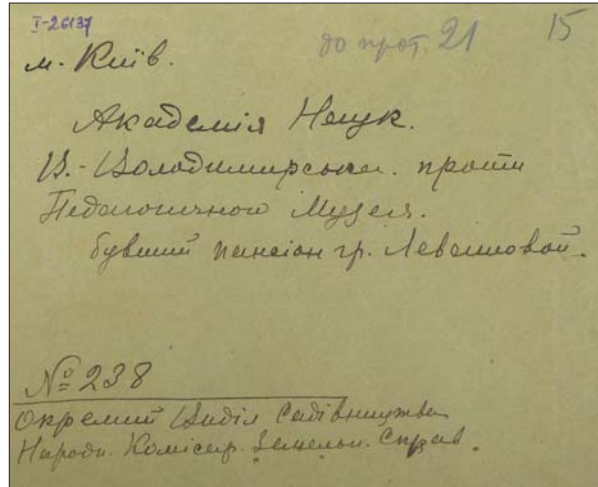 I-26137
до прот. 21
15
м. Київ.
Академія Наук.
В.-Володимирська. проти
Педагогичного Музея.
бувший пансіон гр. Левашовой.
№ 238
Окремий Виділ Садівництва
Народн. Комісар. Земельн. Справ.